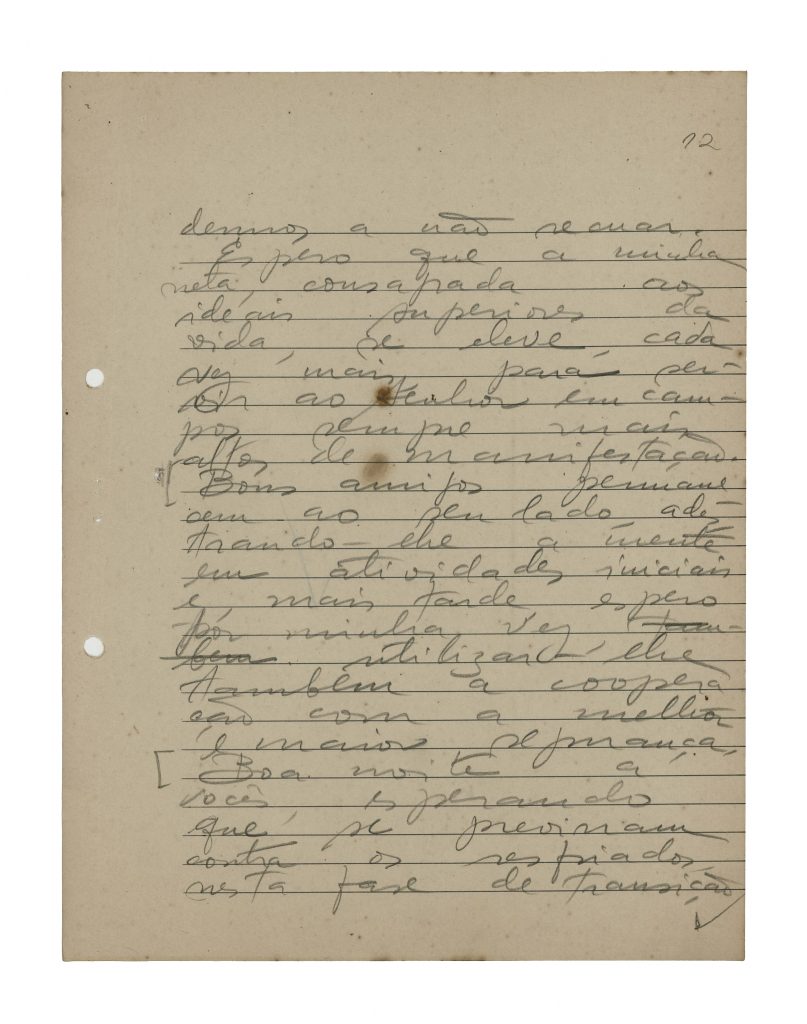 12
demos a não recuar.
Espero que a minha
neta, consagrada aos
ideais superiores da
vida, se eleve, cada
vez mais, para ser-
vir ao Senhor em cam-
pos sempre mais
altos de manifestação.
Bons amigos permane
cem ao seu lado, ades-
trando-lhe a mente
em atividades iniciais
e, mais tarde, espero
por minha vez tam-
bem utilizar-lhe
também a coopera
ção com a melhor
e maior segurança.
Boa noite a
vocês, esperando
que se previnam
contra os resfriados
nesta fase de transição